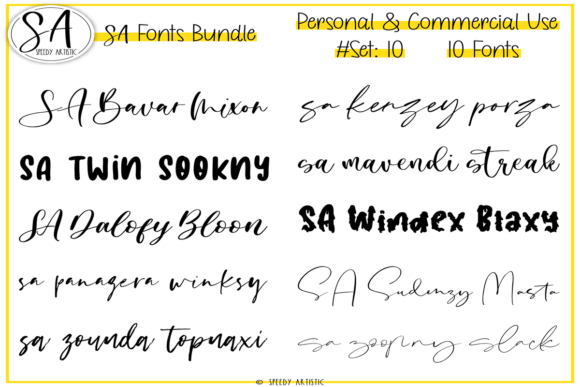 SA
SPEEDY ARTISTIC
SA Fonts Bundle
Personal & Commercial Use
#Set: 10 10 Fonts
SA Bavar Mixon
SA TWIN SOOKNY
SA Dalofy Bloon
sa panagera winksy
sa zounda topnaxi
sa kenzey porza
sa mavendi streak
SA Windex Blaxy
SA Sudenzy Masta
sa zoopny slack
© SPEEDY ARTISTIC